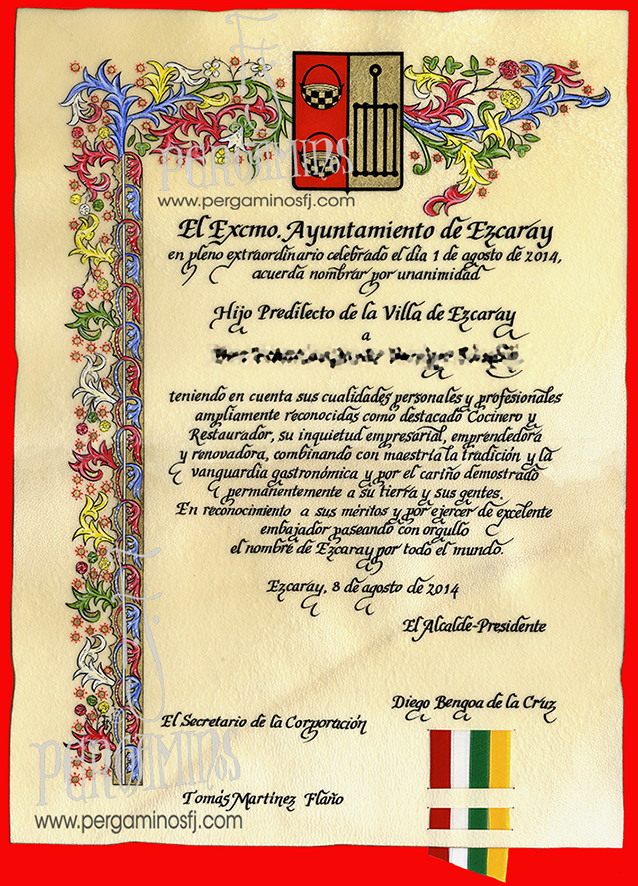 PERGAMINOS
www.pergaminosfj.com
El Excmo. Ayuntamiento de Ezcaray
en pleno extraordinario celebrado el día 1 de agosto de 2014,
acuerda nombrar por unanimidad
Hijo Predilecto de la Villa de Ezcaray
a
teniendo en cuenta sus cualidades personales y profesionales
ampliamente reconocidas como destacado Cocinero y
Restaurador, su inquietud empresarial, emprendedora
y renovadora, combinando con maestría la tradición y la
vanguardia gastronómica y por el cariño demostrado
permanentemente a su tierra y sus gentes.
En reconocimiento a sus méritos y por ejercer de excelente
embajador paseando con orgullo
el nombre de Ezcaray por todo el mundo.
Ezcaray, 8 de agosto de 2014
El Alcalde-Presidente
Diego Bengoa de la Cruz
El Secretario de la Corporación
PERGAMINOS
Tomás Martínez Flaño
www.pergaminosfj.com